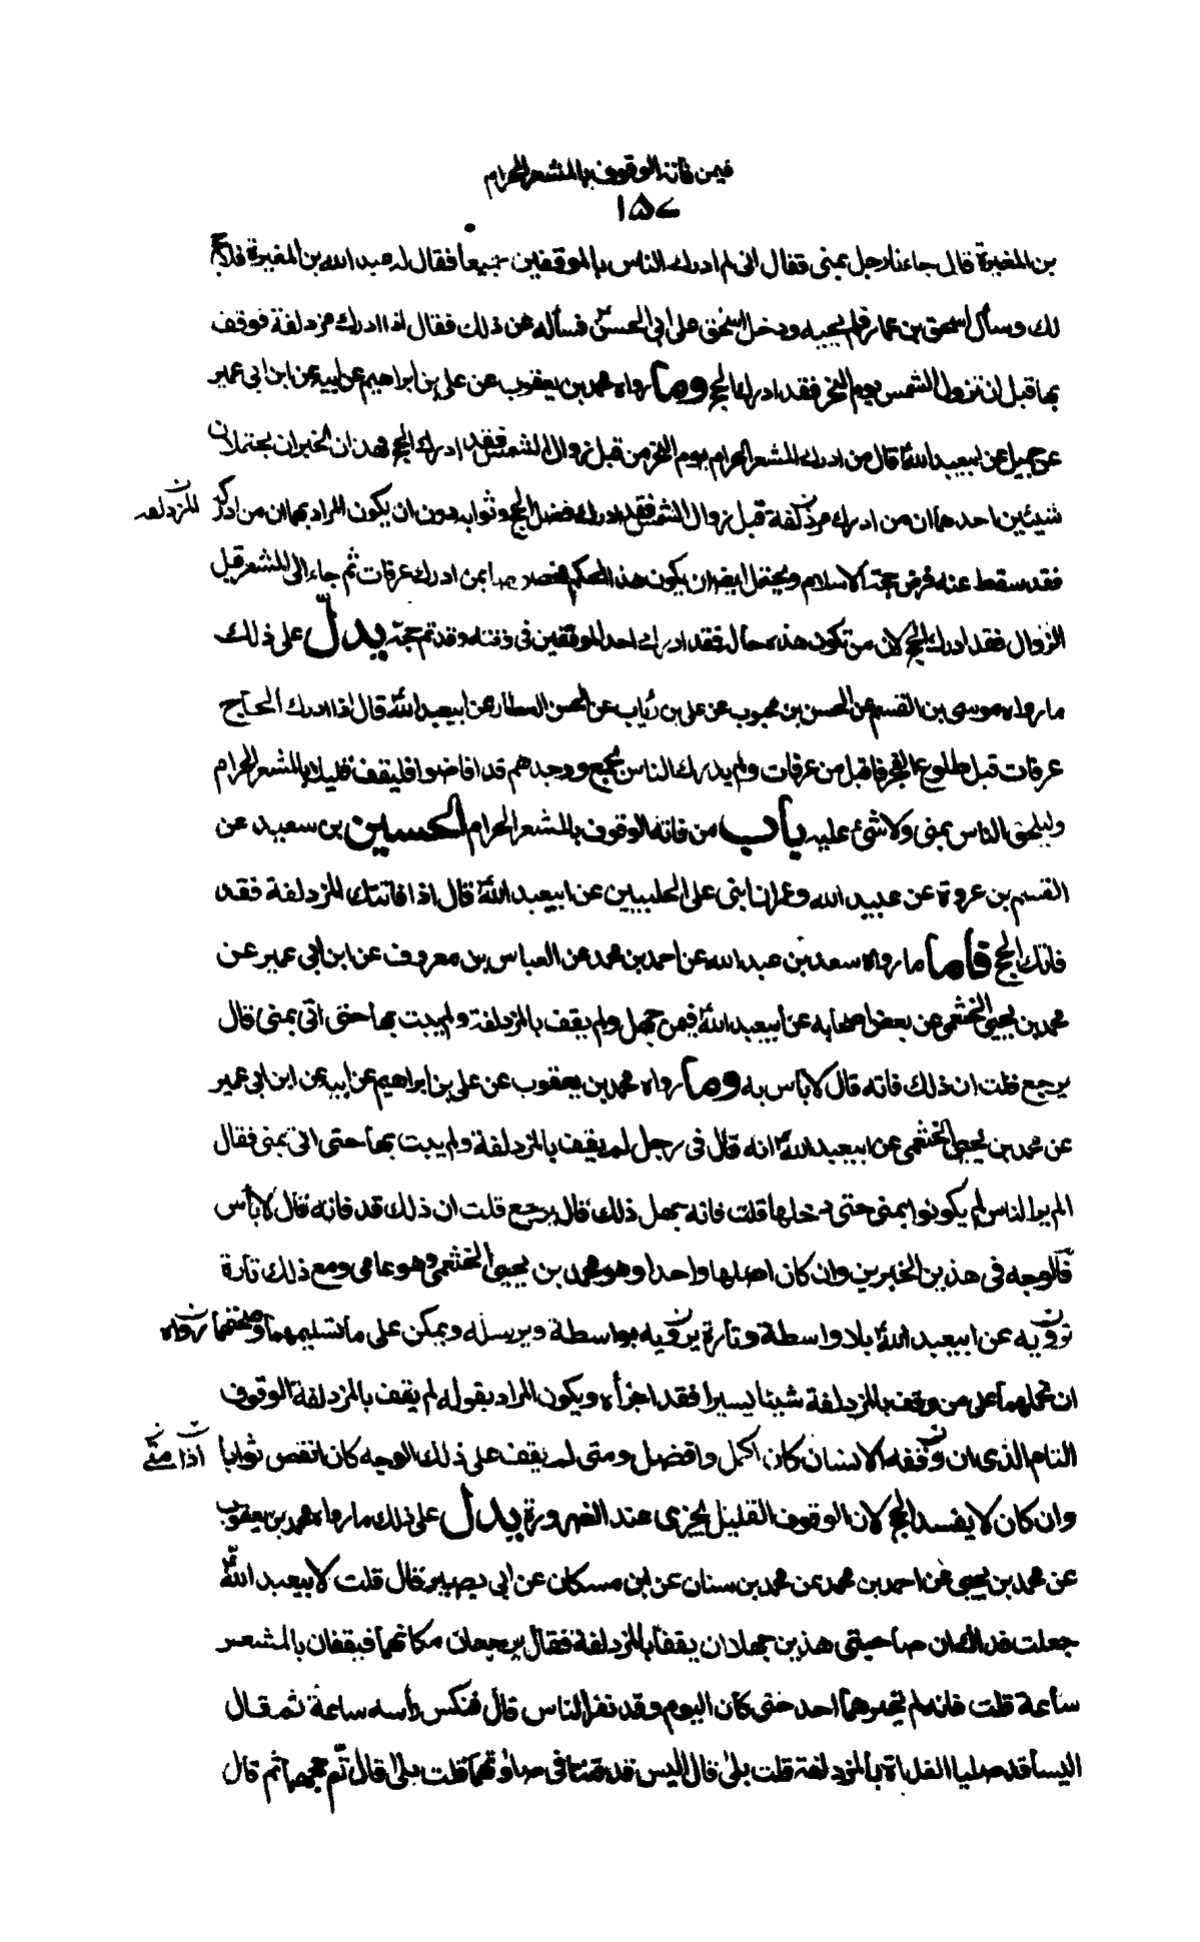 فيمن فاته الوقوف بالمشعر الحرام
١٥٧
بن المغيرة قال جاءنا رجل بمنى فقال انى لم ادرك الناس بالموقفين جميعا فقال له عبد الله بن المغيرة فلا حج
لك وسأل اسحق بن عمار فلم يجبه ودخل اسحق على ابى الحسن فسأله عن ذلك فقال اذا ادرك مزدلفة فوقف
بها قبل ان تزول الشمس يوم النحر فقد ادرك الحج وما رواه محمد بن يعقوب عن على بن ابراهيم عن ابيه عن ابن ابى عمير
عن جميل عن ابيعبد الله قال من ادرك المشعر الحرام يوم النحر من قبل زوال الشمس فقد ادرك الحج فهذان الخبران يحتملان
شيئين احدهما ان من ادرك مزدلفة قبل زوال الشمس فقد ادرك فضل الحج وثوابه دون ان يكون المراد بهما ان من ادرك المزدلفه
فقد سقط عنه فرض حجة الاسلام ويحتمل ايضا ان يكون هذا الحكم مخصوصا بمن ادرك عرفات ثم جاء الى المشعر قبل
الزوال فقد ادرك الحج لان من تكون هذه حاله فقد ادرك احد الموقفين فى وقته وقد تم حجه يدل على ذلك
ما رواه موسى بن القسم عن الحسن بن محبوب عن على بن رئاب عن الحسن العطار عن ابيعبد الله قال اذا ادرك الحاج
عرفات قبل طلوع الفجر فاقبل من عرفات ولم يدرك الناس بجمع ووجدهم قد افاضوا فليقف قليلا بالمشعر الحرام
وليلحق الناس بمنى ولا شئ عليه باب من فاته الوقوف بالمشعر الحرام الحسين بن سعيد عن
القسم بن عروة عن عبيد الله وعمران ابنى على الحلبيين عن ابيعبد الله قال اذا فاتتك المزدلفة فقد
فاتك الحج فاما ما رواه سعد بن عبد الله عن احمد بن محمد عن العباس بن معروف عن ابن ابى عمير عن
محمد بن يحيى الخثعمى عن بعض اصحابه عن ابيعبد الله فيمن جهل ولم يقف بالمزدلفة ولم يبت بها حتى اتى بمنى قال
يرجع قلت ان ذلك فاته قال لا باس به وما رواه محمد بن يعقوب عن على بن ابراهيم عن ابيه عن ابن ابى عمير
عن محمد بن يحيى الخثعمى عن ابيعبد الله انه قال فى رجل لم يقف بالمزدلفة ولم يبت بها حتى اتى بمنى فقال
الم ير الناس لم يكونوا بمنى حتى دخلها قلت فانه جهل ذلك قال يرجع قلت ان ذلك قد فاته قال لا بأس
فالوجه فى هذين الخبرين وان كان اصلها واحدا وهو محمد بن يحيى الخثعمى وهو عامى ومع ذلك تارة
يرويه عن ابيعبد الله بلا واسطة وتارة يرويه بواسطة ويرسله ويمكن على ما تسليمهما وصحتهما رواه
ان نحملهما على من وقف بالمزدلفة شيئا يسيرا فقد اجزأه ويكون المراد بقوله لم يقف بالمزدلفة الوقوف
التام الذى ان وقفه الانسان كان اكمل وافضل ومتى لم يقف على ذلك الوجه كان انقص ثوابا اذا متى
وان كان لا يفسد الحج لان الوقوف القليل يجزى عند الضرورة يدل على ذلك ما رواه محمد بن يعقوب
عن محمد بن يحيى عن احمد بن محمد عن محمد بن سنان عن ابن مسكان عن ابى بصير قال قلت لابيعبد الله
جعلت فداك ان صاحبتى هذين جهلا ان يقفا بالمزدلفة فقال يرجعان مكانهما فيقفان بالمشعر
ساعة قلت فانه لم يخبرهما احد حتى كان اليوم وقد نفر الناس قال فنكس رأسه ساعة ثم قال
اليسا قد صليا الغداة بالمزدلفة قلت بلى قال اليس قد قنتا فى صلوتهما قلت بلى قال تم حجهما ثم قال